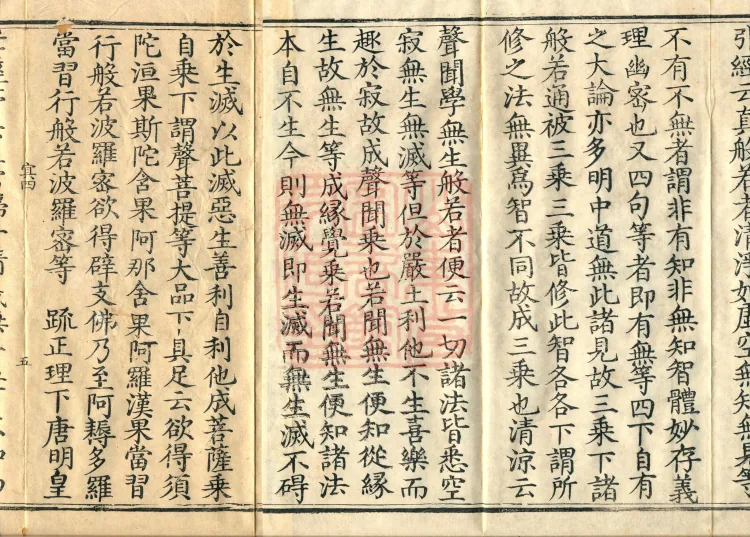 引經云真般若者清淨如虛空無知無
不有不無者謂非有知非無知智體妙存義
理幽密也又四句等者即有無等四下自有
之大論亦多明中道無此諸見故三乘下諸
般若通被三乘三乘皆修此智各各下謂所
修之法無異為智不同故成三乘也清涼云
聲聞學無生般若者便云一切諸法皆悉空
寂無生無滅等但於嚴土利他不生喜樂而
趣於寂故成聲聞乘也若聞無生便知從緣
生故無生等成緣覺乘若聞無生便知諸法
本自不生今則無滅即生滅而無生滅不碍
於生滅以此滅惡生善利自利他成菩薩乘
自乘下謂聲菩提等大品下具足云欲得須
陀洹果斯陀含果阿那含果阿羅漢果當習
行般若波羅密欲得辟支佛乃至阿耨多羅
當習行般若波羅密等　䟽正理下唐明皇
五